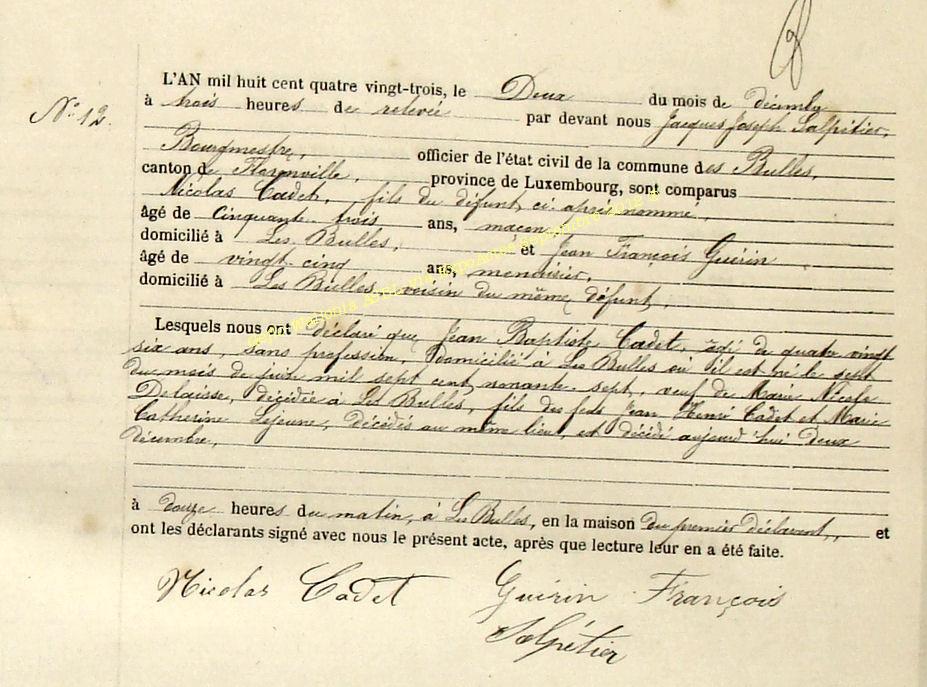 N° 12.
L'AN mil huit cent quatre vingt-trois, le Deux du mois de décembre
à trois heures de relevée par devant nous Jacques Joseph Salpétier,
Bourgmestre, officier de l'état civil de la commune des Bulles,
canton de Florenville, province de Luxembourg, sont comparus
Nicolas Cadet, fils du défunt ci-après nommé,
âgé de cinquante trois ans, maçon,
domicilié à Les Bulles, et Jean François Guérin
âgé de vingt cinq ans, menuisier,
domicilié à Les Bulles, voisin du même défunt,
Lesquels nous ont déclaré que Jean Baptiste Cadet, âgé de quatre vingt
six ans, sans profession, domicilié à Les Bulles où il est né le sept
du mois de juin mil sept cent nonante-sept, veuf de Marie Nicole
Delaisse, décédée à Les Bulles, fils des feus Jean Henri Cadet et Marie
Catherine Lejeune, décédés au même lieu, est décédé aujourd'hui deux
décembre,
à douze heures du matin, à Les Bulles, en la maison du premier déclarant, et
ont les déclarants signé avec nous le présent acte, après que lecture leur en a été faite.
Nicolas Cadet Guérin François
Salpétier